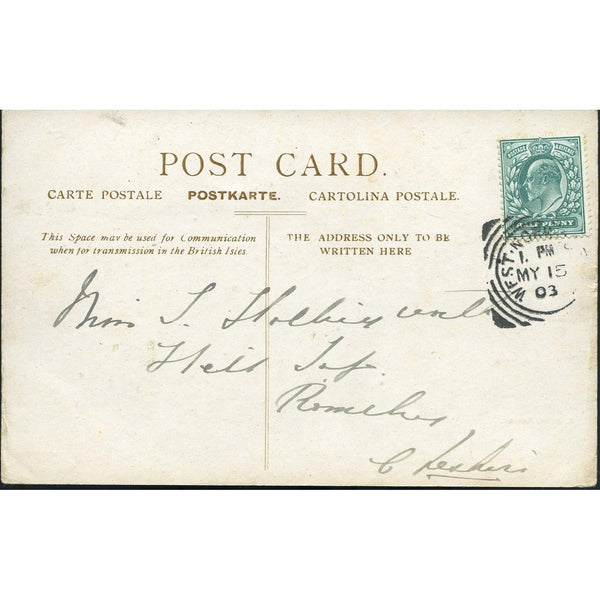 POST CARD.
CARTE POSTALE POSTKARTE. CARTOLINA POSTALE.
This Space may be used for Communication
when for transmission in the British Isles
THE ADDRESS ONLY TO BE
WRITTEN HERE
POSTAGE & REVENUE
PENNY
WEST
1. PM
MY 15
03
Miss S.
Hill Top
Romiley
Cheshire